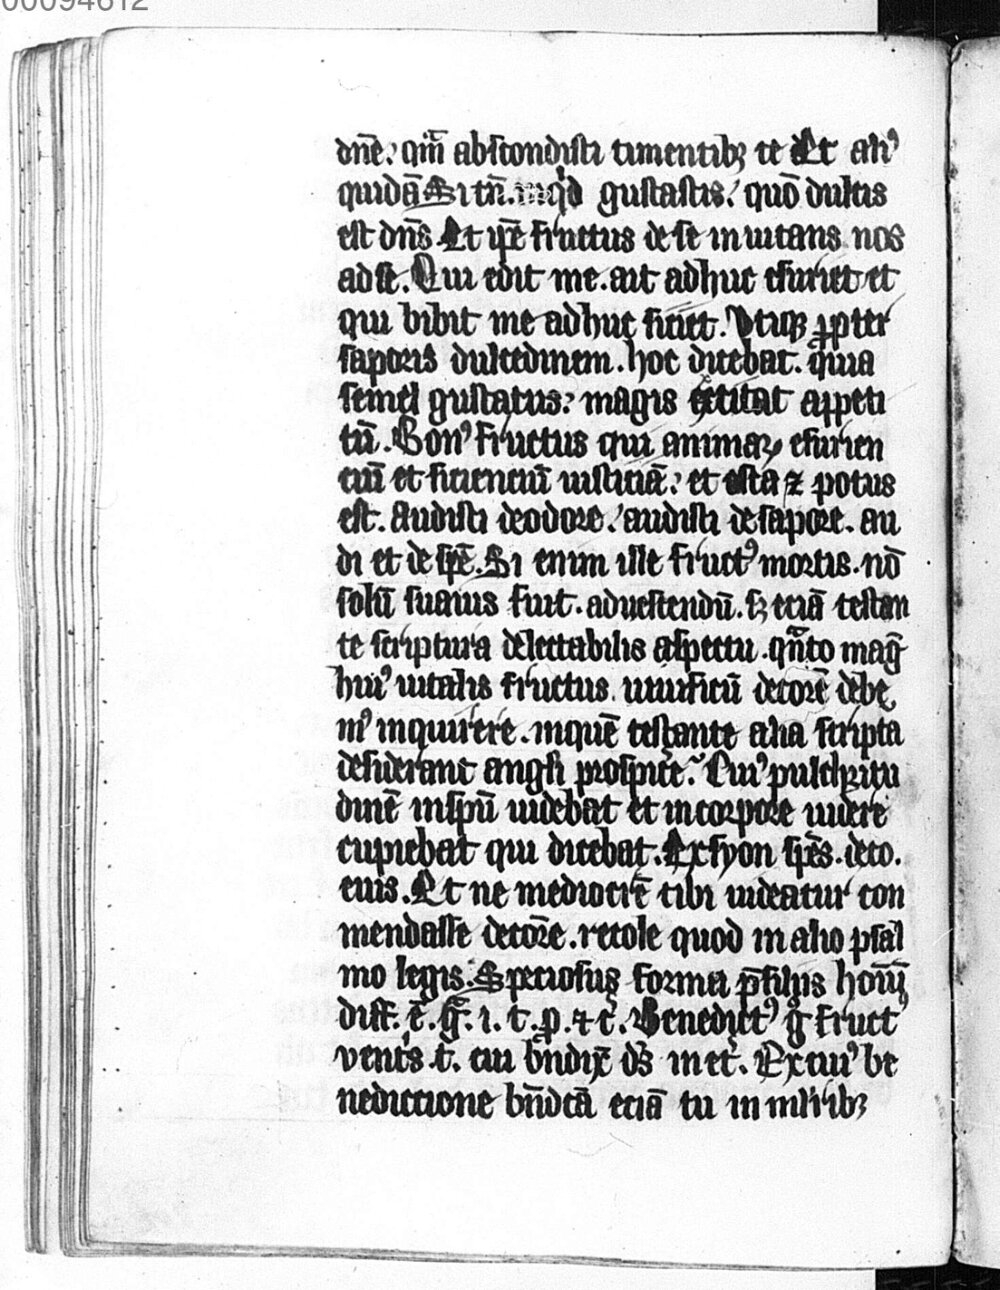 00094612
dn̄e. qm̄ abſcondiſti timentibꝫ te Et alı᾽
quidā Si tn̄. inqd guſtaſtis. quō dulcis
eſt dn̄s Et ip̄e fructus de ſe inuitans nos
ad ſe. Qui edit me. ait adhuc eſuriet et
qui bibit me adhuc ſitiet. Vtiqꝫ ꝓpter
ſaporis dulcedinem. hoc dicebat. quia
ſemel guſtatus. magis excitat appeti
tū. Bon᾽ fructus qui animaꝝ eſurien
ciū et ſiciencium iuſticiā. et eſca ⁊ potus
eſt. Audiſti de odore. audiſti de ſapore. au
di et de ſpē. Si enim ille fruct᾽ mortis. nō
ſolū ſuauis fuit. ad veſcendū. ſꝫ eciā teſtan
te ſcriptura delectabilis aſpectu. qnto maḡ
hui᾽ uitalis fructus. uiuificū decorē debe
m᾽ inquirere. in quē teſtante alia ſcriptᷓa
deſiderant angli proſpicẽ. Cui᾽ pulchritu
dinē in ſpū uidebat et in corpore uidere
cupiebat qui dicebat. Ex ſyon ſpēs. deco.
eius. Et ne mediocrē tibi uideatur con
mendaſſe decorē. recole quod in alio pſal
mo legis. Specioſus forma p̄ filiis hoīū
diff. ē. g̃. i. l. p. ⁊ c̃. Benedict᾽ g̊ fruct᾽
ventᷤ t. cui bn̄dix̄ dꝰ in et̃. Ex cui᾽ be
nedictione bn̄dctā eciā tu in mĺıı̇ıbꝫ